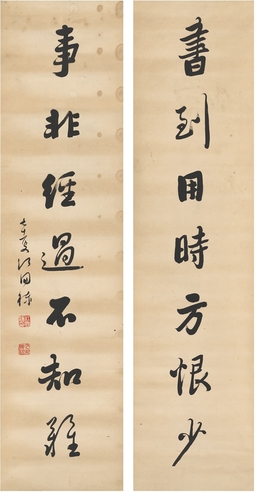 書到用時方恨少
事非經過不知難
江國棟